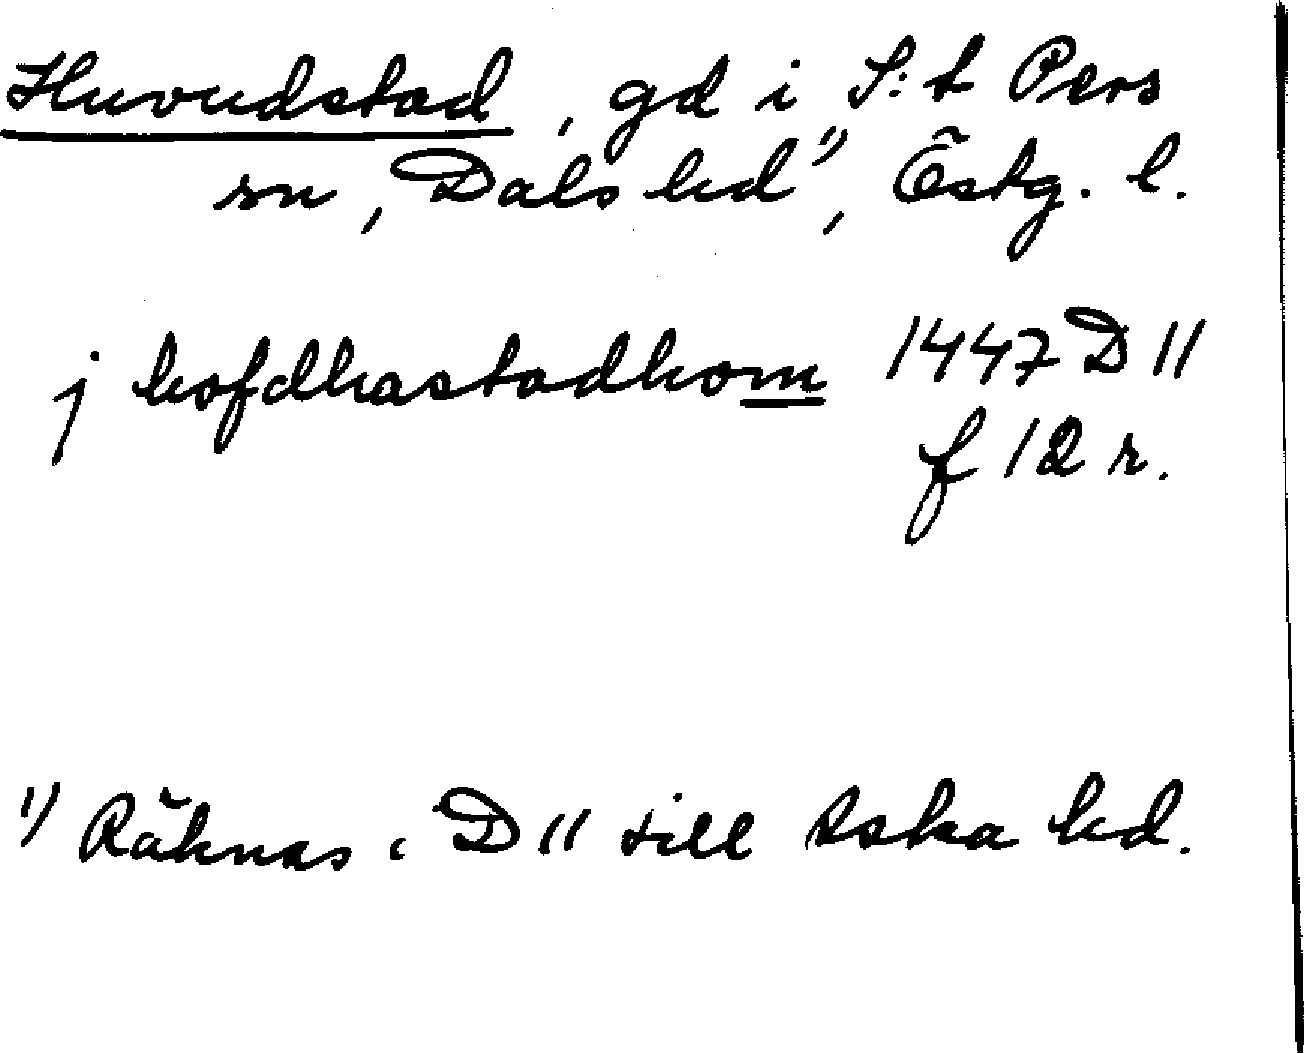 Huvudstad, gd i S:t Pers
sn, Dals hd¹⁾, Östg. l.
j hofdhastadhom 1447 D 11
f 12 r.
¹⁾ Räknas i D 11 till Aska hd.